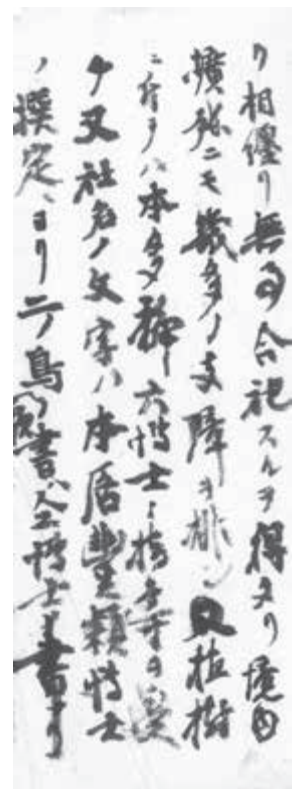 リ相纏リ無事合祀スルヲ得タリ境内
擴張ニモ幾多ノ支障ヲ排シ又植樹
ニ付テハ本多静六博士ノ指導ヲ受
ケ又社名ノ文字ハ本居豊頴博士
ノ撰定ニヨリ二ノ鳥 書ハ 博士ノ書ナリ